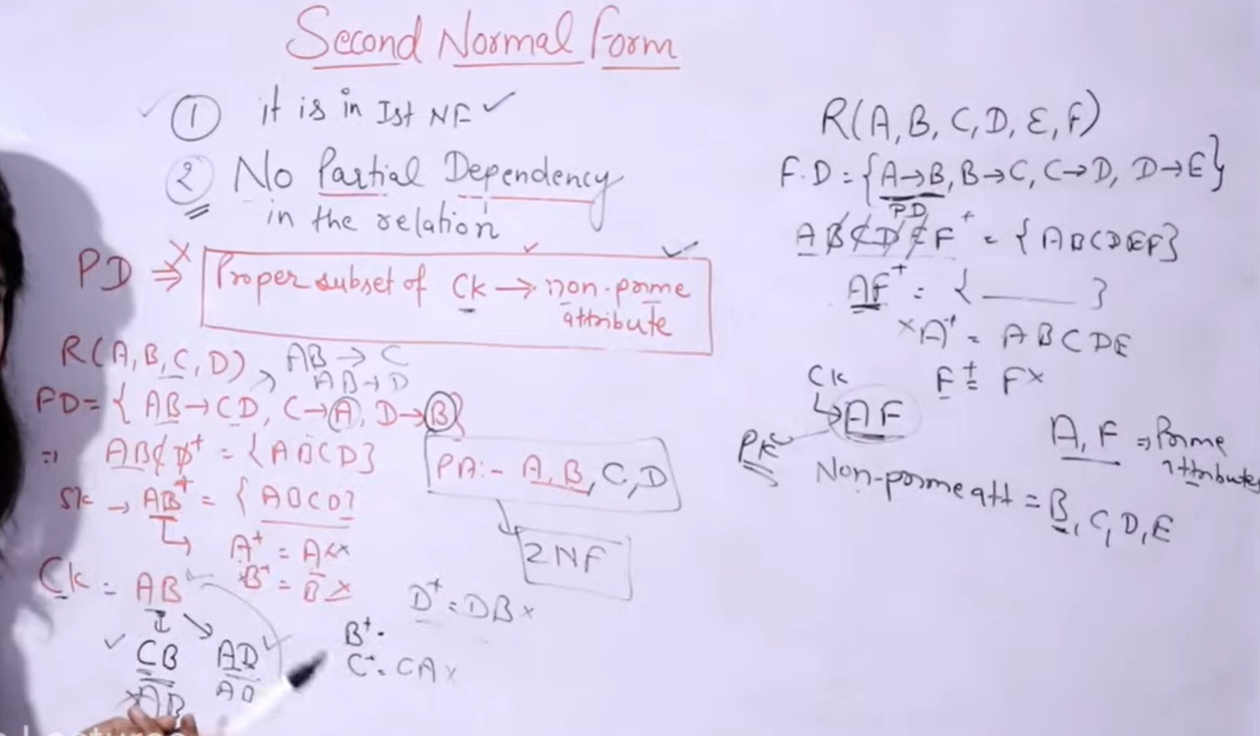 Second Normal Form
① it is in Ist NF ✓
② No Partial Dependency
in the relation
PD ⇒ Proper subset of Ck → non-prime
attribute
R(A,B,C,D)
AB → C
AB → D
FD = { AB → CD, C → A, D → B}
⇒ ABCD⁺ = {ABCD}
Sk → AB⁺ = { ABCD}
A⁺ = A ×
B⁺ = B ×
Ck = AB
CB AD
AB
PA:- A, B, C, D
2NF
D⁺ = DB ×
B⁺ =
C⁺ = CA ×
R(A, B, C, D, E, F)
F.D = {A→B, B→C, C→D, D→E}
PD
ABCDEF⁺ = { ABCDEF}
AF⁺ = { ______ }
×A⁺ = ABCDE
F⁺ = F ×
Ck
AF
PK
A, F ⇒ Prime
attributes
Non-prime att = B, C, D, E